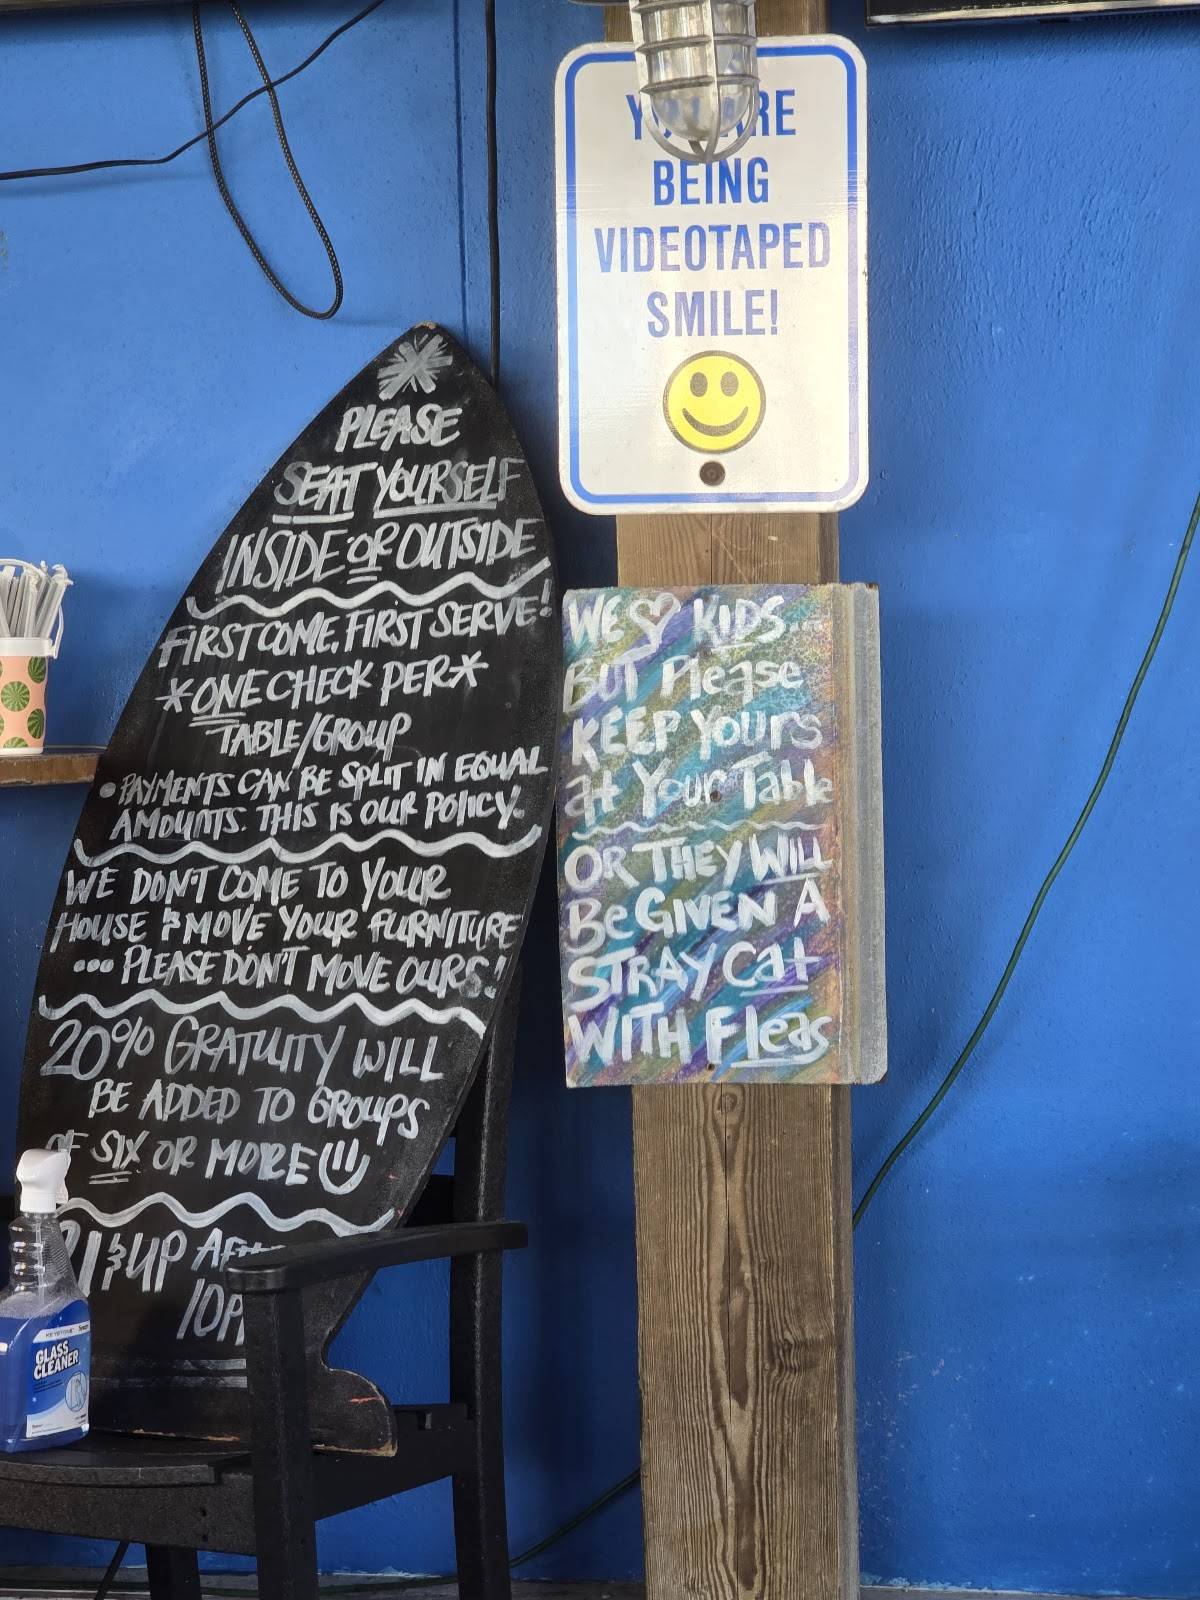 PLEASE
SEAT YOURSELF
INSIDE OR OUTSIDE
FIRST COME, FIRST SERVE!
*ONE CHECK PER*
TABLE/GROUP
• PAYMENTS CAN BE SPLIT IN EQUAL
AMOUNTS. THIS IS OUR POLICY.
WE DON'T COME TO YOUR
HOUSE & MOVE YOUR FURNITURE
... PLEASE DON'T MOVE OURS!
20% GRATUITY WILL
BE ADDED TO GROUPS
OF SIX OR MORE
21 & UP
YOU ARE
BEING
VIDEOTAPED
SMILE!
WE ♡ KIDS...
BUT Please
KEEP Yours
at Your Table
OR THEY WILL
Be GIVEN A
STRAY Cat
WITH Fleas
KEYSTONE
GLASS
CLEANER